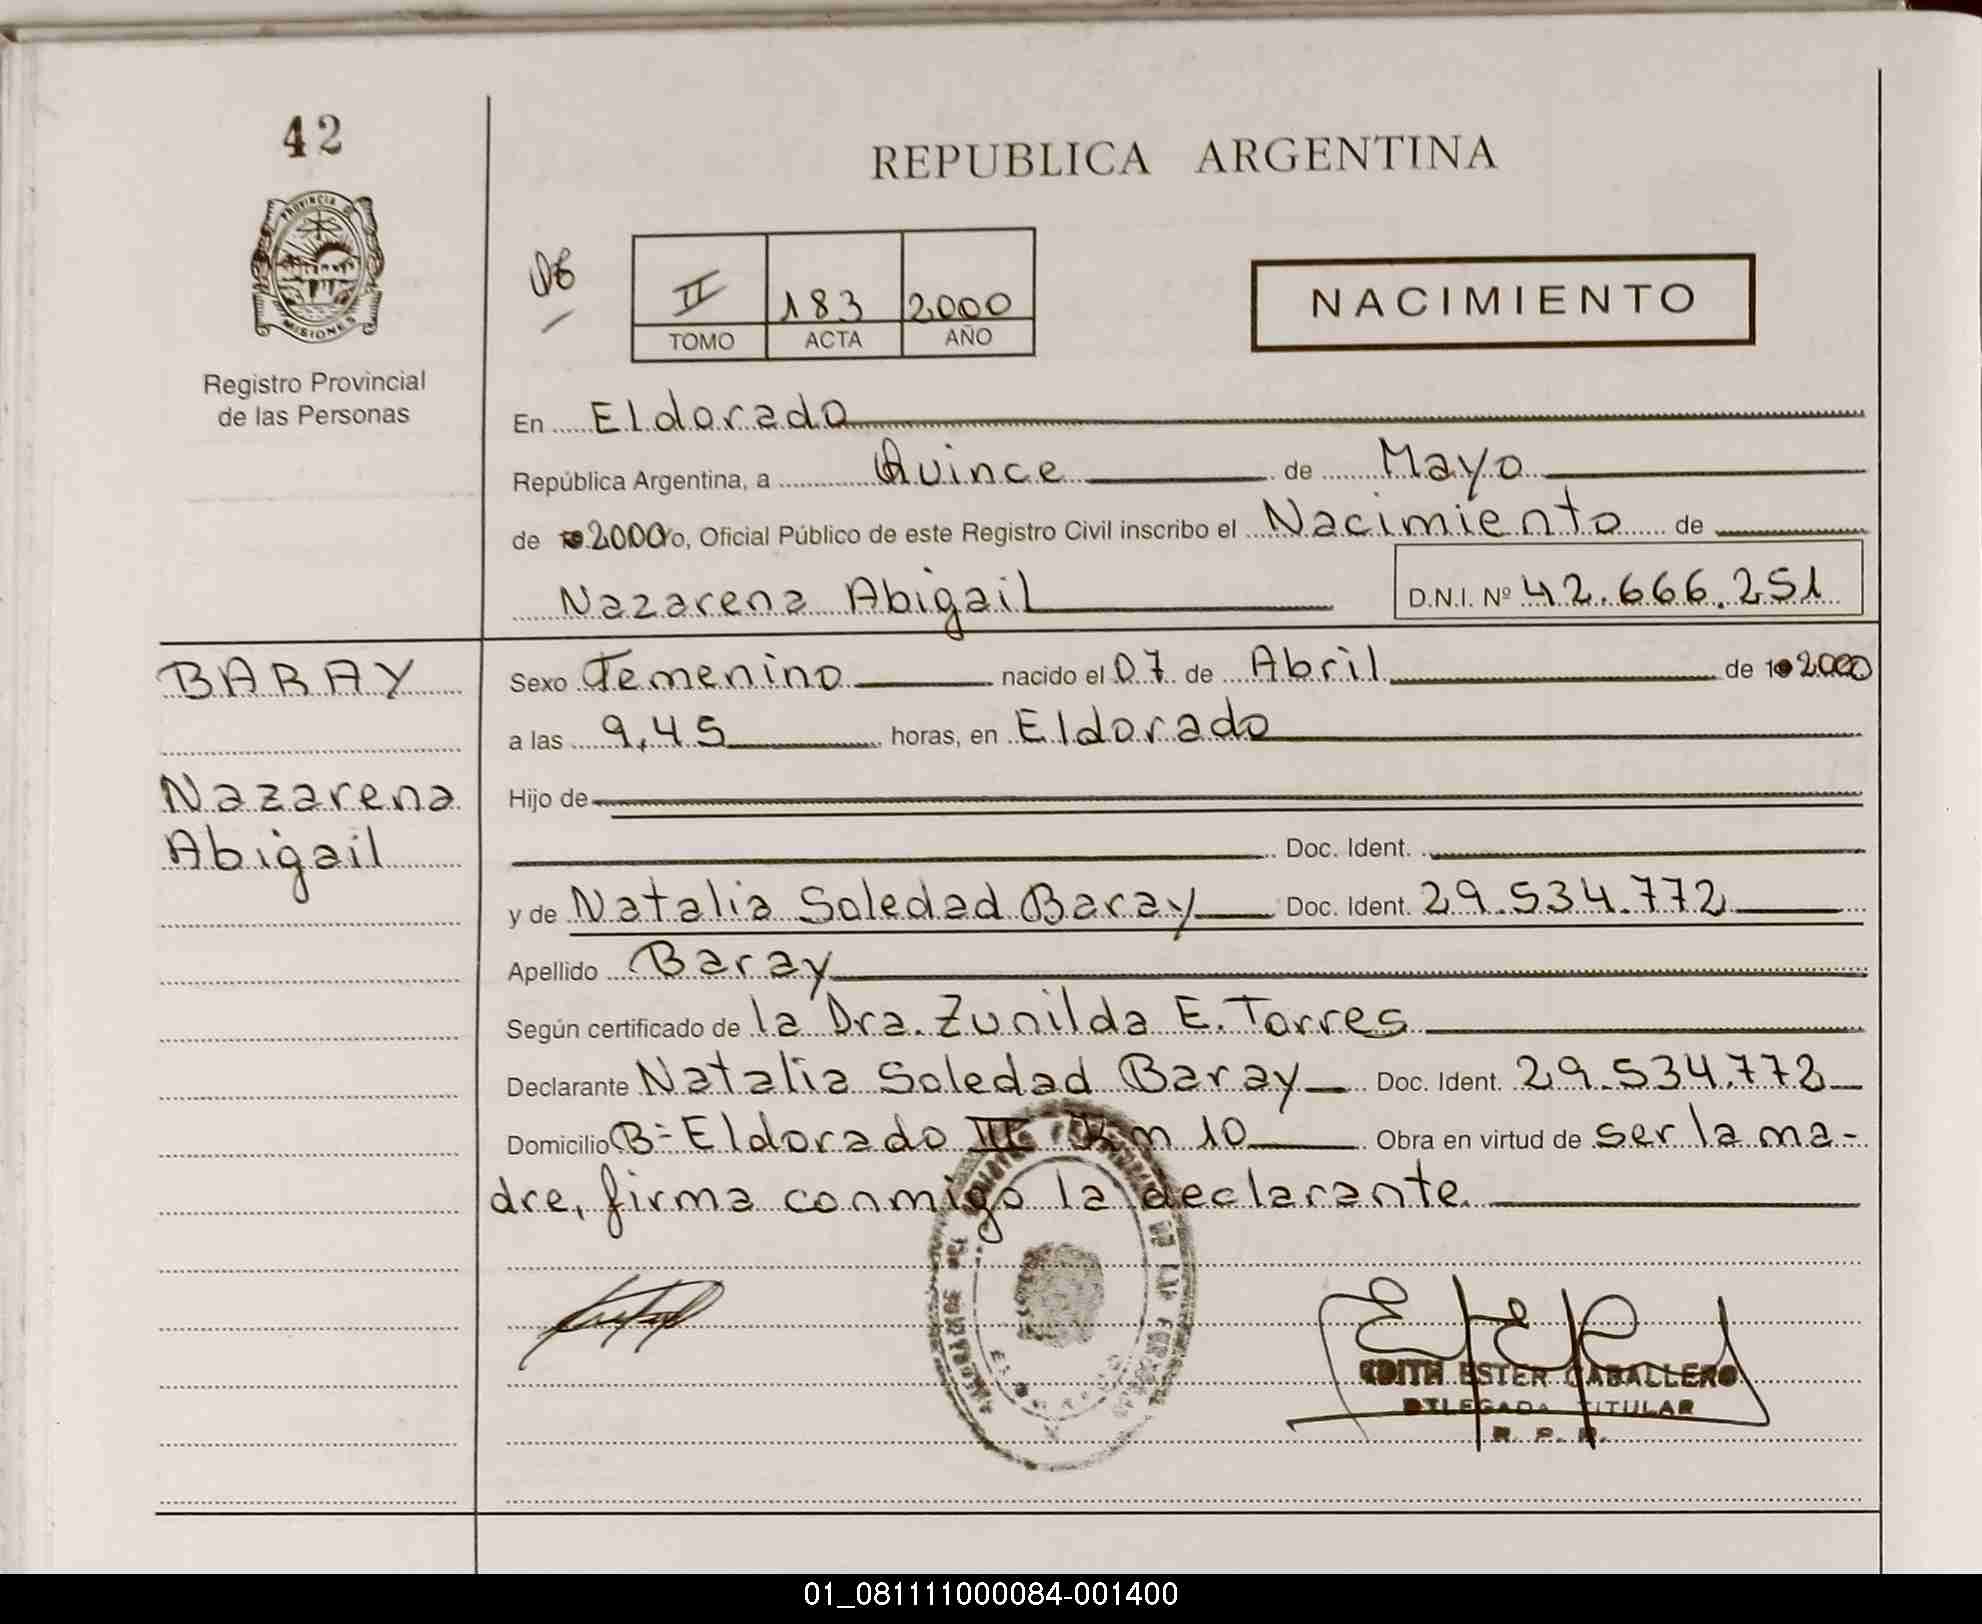 42
PROVINCIA DE
MISIONES
Registro Provincial
de las Personas
REPUBLICA ARGENTINA
II 183 2000
TOMO ACTA AÑO
NACIMIENTO
En Eldorado
República Argentina, a Quince de Mayo
de 2000 yo, Oficial Público de este Registro Civil inscribo el Nacimiento de
Nazarena Abigail D.N.I. Nº 42.666.251
BARAY
Nazarena
Abigail
Sexo Femenino nacido el 07 de Abril de 2000
a las 9,45 horas, en Eldorado
Hijo de
Doc. Ident.
y de Natalia Soledad Baray Doc. Ident. 29.534.772
Apellido Baray
Según certificado de la Dra. Zunilda E. Torres
Declarante Natalia Soledad Baray Doc. Ident. 29.534.772
Domicilio B= Eldorado III Km 10 Obra en virtud de ser la ma-
dre, firma conmigo la declarante.
EDITH ESTER CABALLERO
DELEGADA TITULAR
R. P. P.
01_081111000084-001400